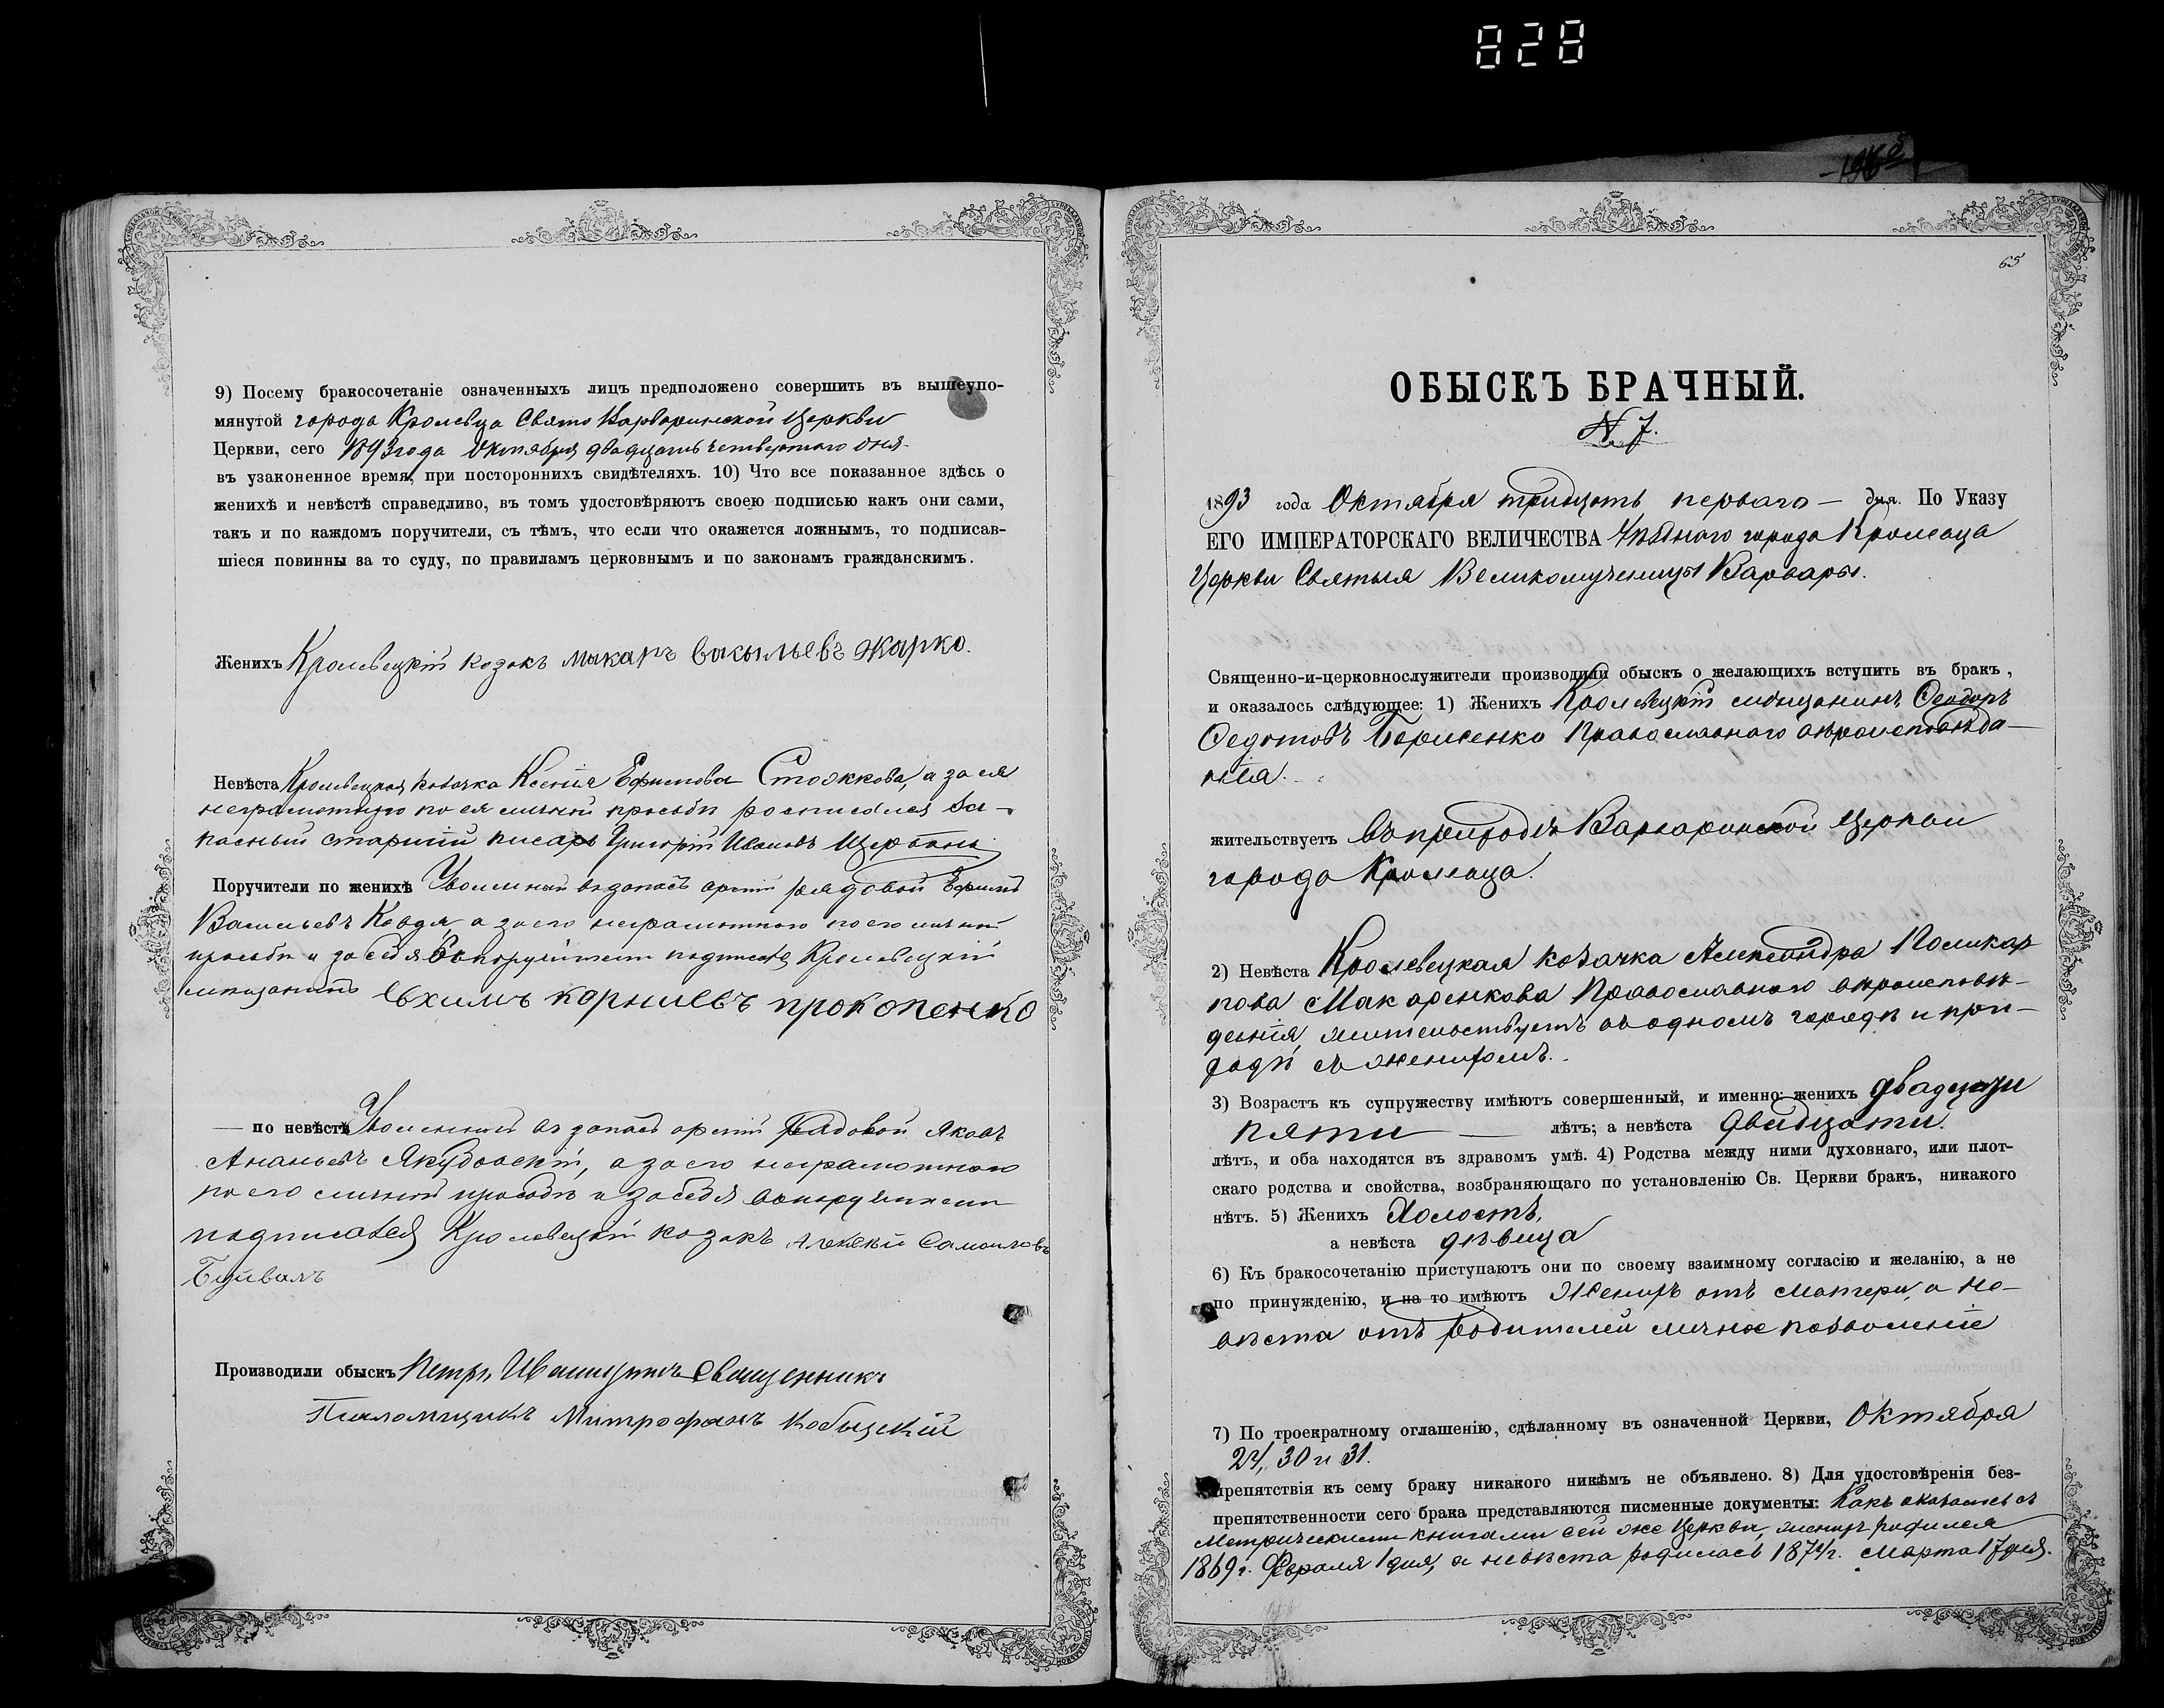 828
9) Посему бракосочетаніе означенныхъ лицъ предположено совершить въ вышеупо-
мянутой города Кролевца Свято Варваринской Церкви
Церкви, сего 1893 года Октября двадцать четвертаго дня.
въ узаконенное время, при постороннихъ свидѣтеляхъ. 10) Что все показанное здѣсь о
женихѣ и невѣстѣ справедливо, въ томъ удостовѣряютъ своею подписью какъ они сами,
такъ и по каждомъ поручители, съ тѣмъ, что если что окажется ложнымъ, то подписав-
шіеся повинны за то суду, по правиламъ церковнымъ и по законамъ гражданскимъ.
Женихъ Кролевецкій козакъ макаръ васильевъ жарко.
Невѣста Кролевецкая козачка Ксенія Ефимова а за ея
неграмотную по ея личной прозьбѣ росписался За-
пасный старшій писарь Григорій Ивановъ Щербань
Поручители по женихѣ Уволенный въ запасъ арміи рядовой Ефимъ
Васильевъ а за его неграмотнаго по его личной
прозьбѣ и за себя во поручители подписался Кролевецкій
мѣщанинъ Єхимъ корниевъ прокопенко
— по невѣстѣ Уволенный въ запасъ арміи рядовой Яковъ
Ананьевъ Якубовскій, а за его неграмотнаго
по его личной прозьбѣ и за себя во поручители
подписался Кролевецкій козакъ Алексѣй Самойловъ
Буйвалъ
Производили обыскъ Петръ Священникъ
Псаломщикъ Митрофанъ Кобыцкій
65
ОБЫСКЪ БРАЧНЫЙ.
N 7.
1893 года Октября тридцать перваго — дня. По Указу
ЕГО ИМПЕРАТОРСКАГО ВЕЛИЧЕСТВА Уѣзднаго города Кролевца
Церкви Святыя Великомученицы Варвары.
Священно-и-церковнослужители производили обыскъ о желающихъ вступить въ бракъ,
и оказалось слѣдующее: 1) Женихъ Кролевецкій мѣщанинъ Ѳеодоръ
Ѳедотовъ Борисенко Православнаго вѣроисповѣда-
нія.
жительствуетъ въ приходѣ Варваринской Церкви
города Кролевца.
2) Невѣста Кролевецкая козачка Александра Поликар
пова Макаренкова Православнаго вѣроисповѣ-
данія, жительствуетъ въ одномъ городѣ и при-
ходѣ съ женихомъ.
3) Возрастъ къ супружеству имѣютъ совершенный, и именно: женихъ двадцати
пяти — лѣтъ; а невѣста двадцати.
лѣтъ, и оба находятся въ здравомъ умѣ. 4) Родства между ними духовнаго, или плот-
скаго родства и свойства, возбраняющаго по установленію Св. Церкви бракъ, никакого
нѣтъ. 5) Женихъ Холостъ,
а невѣста дѣвица
6) Къ бракосочетанію приступаютъ они по своему взаимному согласію и желанію, а не
по принужденію, и на то имѣютъ Женихъ отъ матери, а не-
вѣста отъ родителей личное позволеніе
7) По троекратному оглашенію, сдѣланному въ означенной Церкви, Октября
24, 30 и 31.
препятствія къ сему браку никакого никѣмъ не объявлено. 8) Для удостовѣренія без-
препятственности сего брака представляются писменные документы: Какъ оказалось съ
Метрическими книгами сей же Церкви, женихъ родился
1869 г. Февраля 1 дня, а невѣста родилась 1874 г. марта 17 дня.